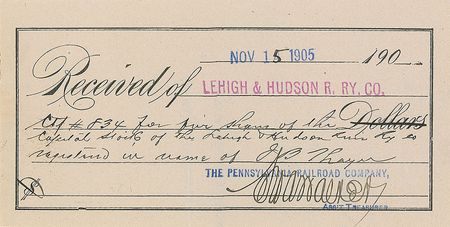 NOV 15 1905 190
Received of LEHIGH & HUDSON R. RY. CO.
Ctf # 834 for five shares of the Dollars
Capital Stock of the Lehigh & Hudson River Ry Co
registered in name of J B Thayer
$
THE PENNSYLVANIA RAILROAD COMPANY,
ASS'T TREASURER